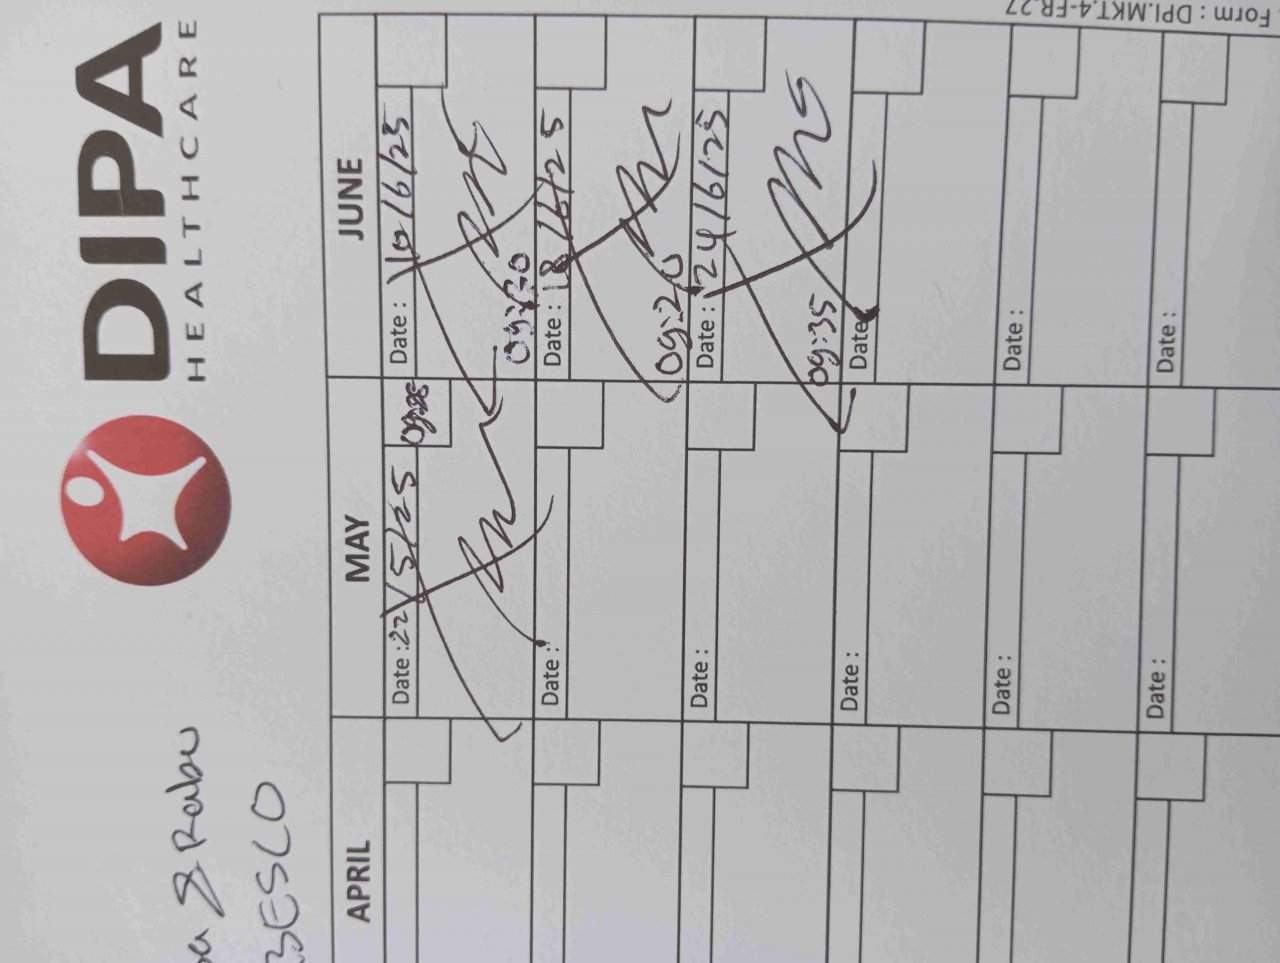 DIPA
HEALTHCARE
& Rabu
Form : DPI.MKT.4-FR.27
APRIL MAY JUNE
Date : 22/5/25 Date : 10/6/25
09:20
Date : Date : 18/6/25
09:20
Date : Date : 24/6/25
09:35
Date : Date
Date : Date :
Date : Date :